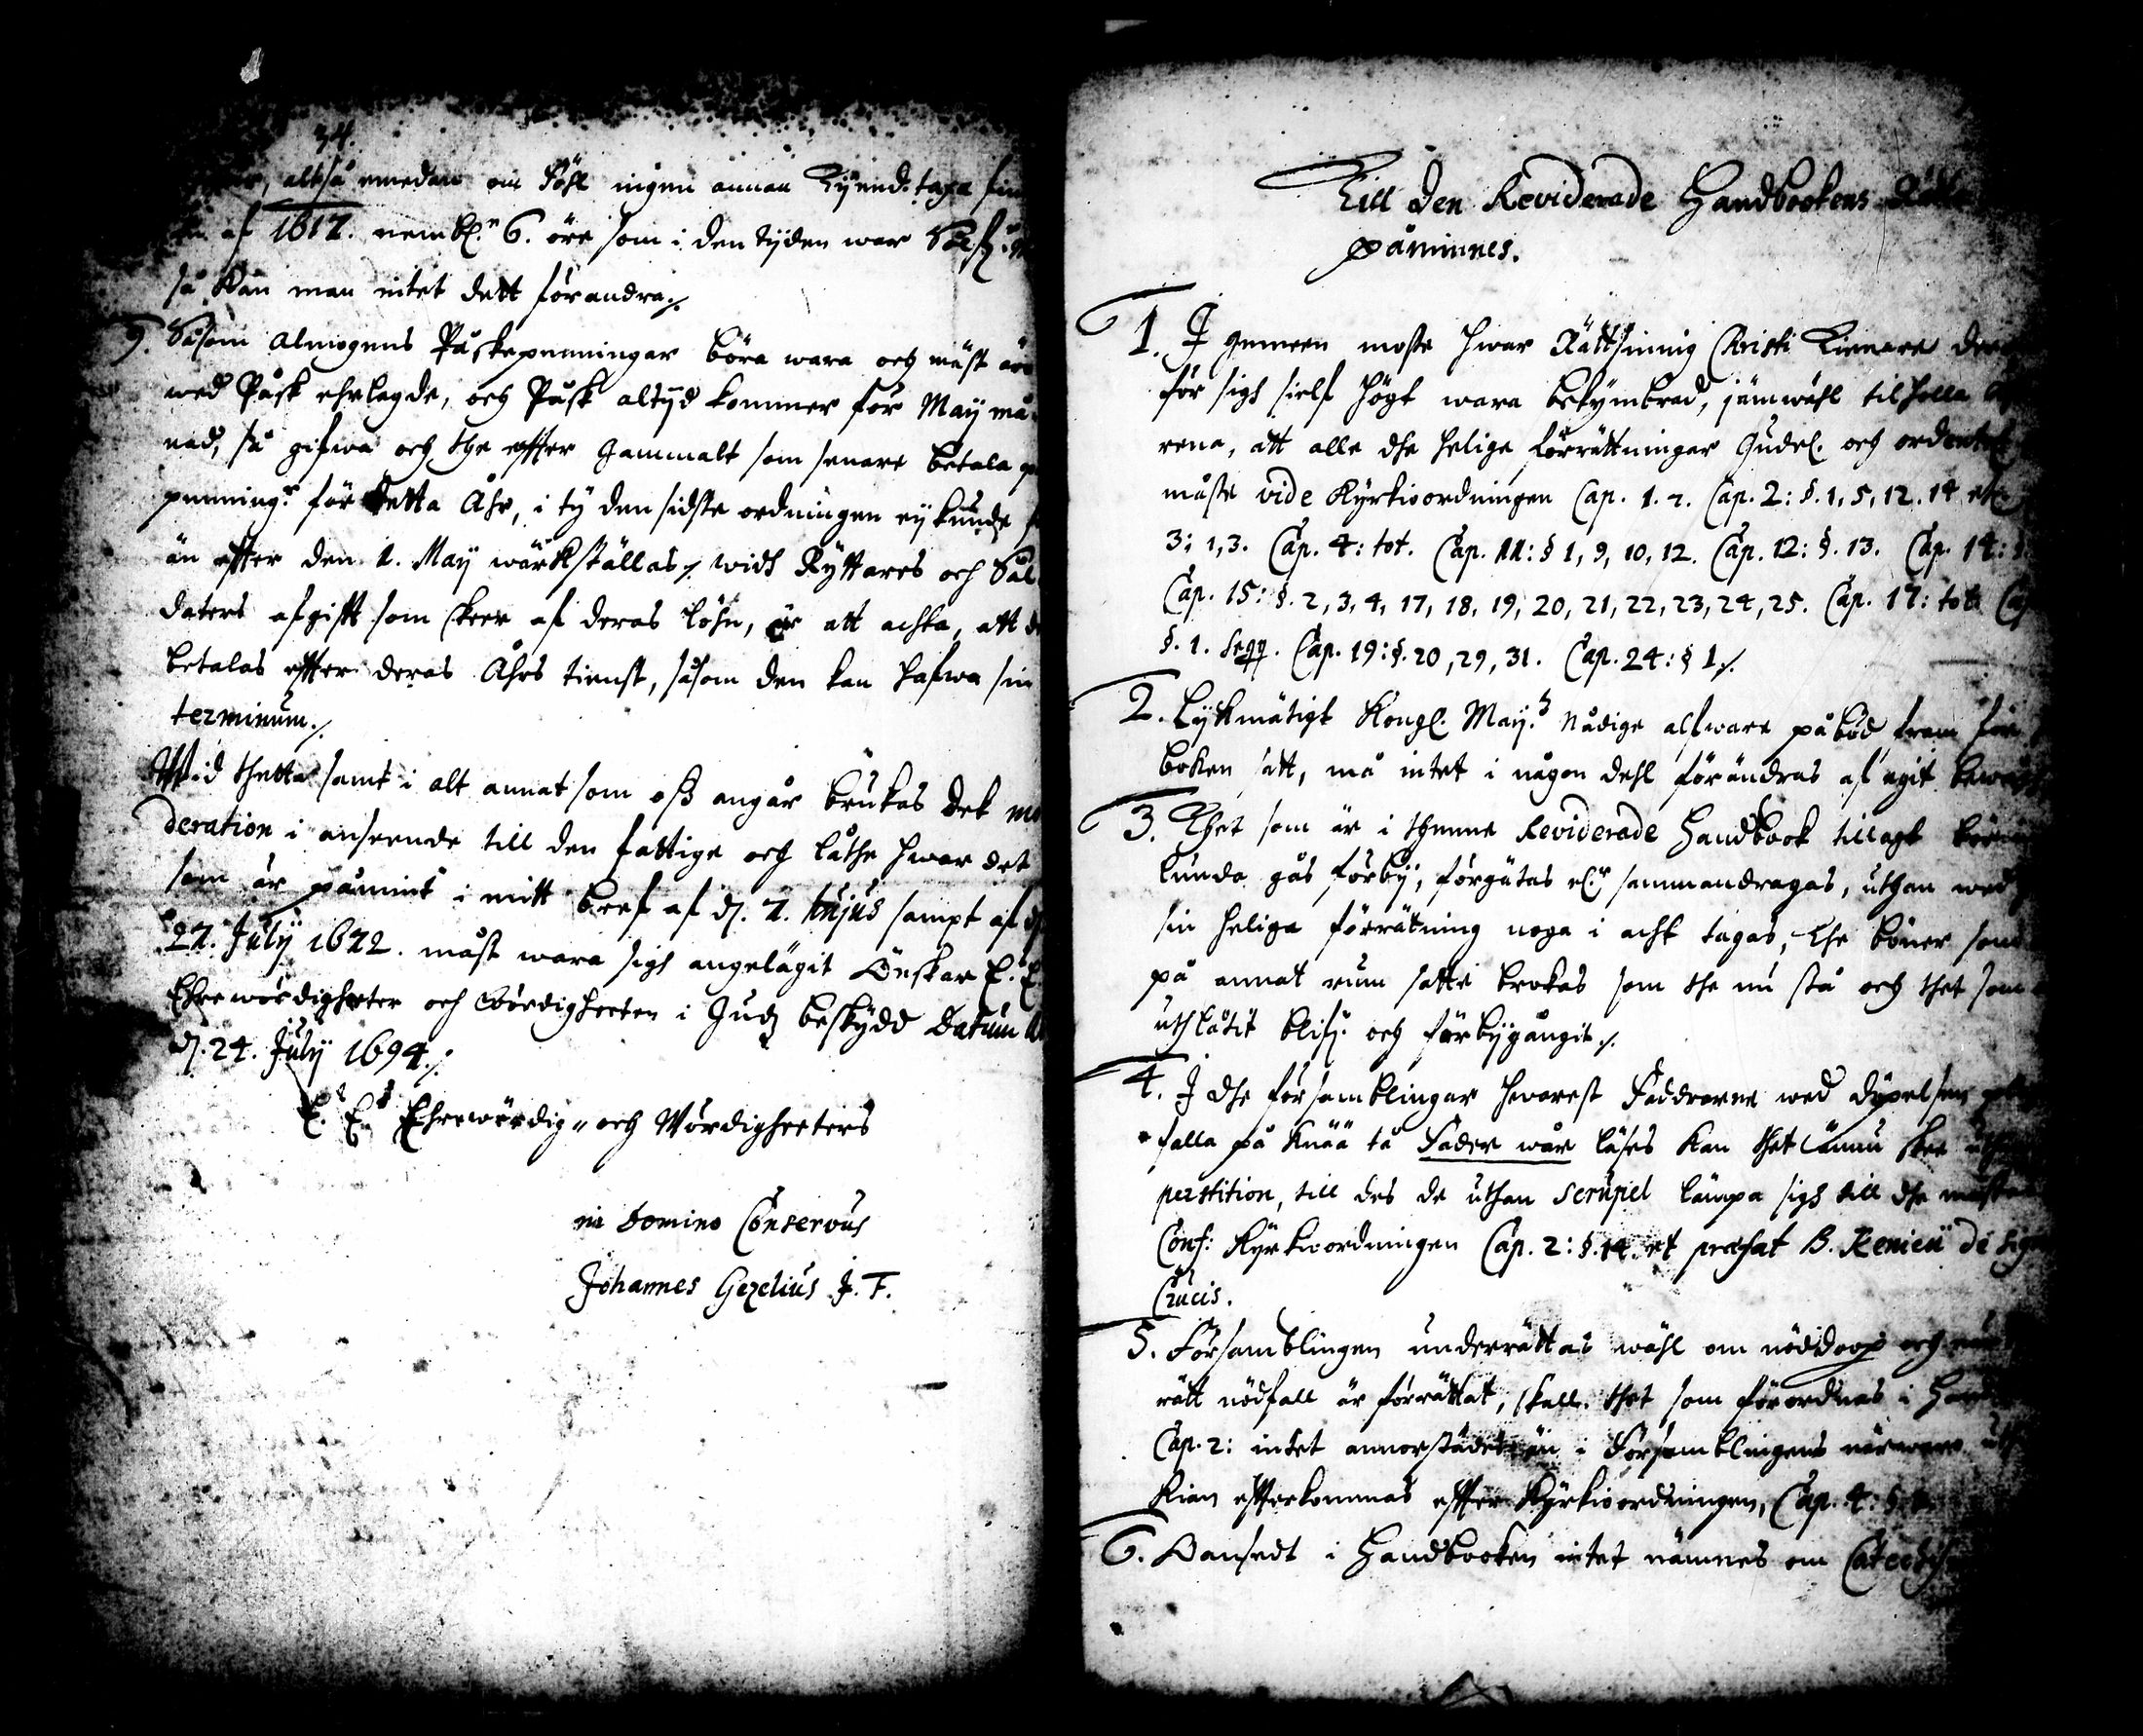 34.
altså emedan om Föhl ingen annan Tijend. taxa fin
af 1617. nembl.n 6. öre som i den tijden war
så kan man intet dett förandra./.
9. Såsom almogens Påskepenningar böra wara och mäst äro
wed Påsk ehrlagde, och Påsk altijd kommer för May må
nad, så gifwa och the effter gammalt som senare betala
penning.r för detta Åhr, i ty den sidste ordningen ey kunde
än effter den 1. May wärkställas./. widh Ryttares och Sål
daters afgifft som skeer af deras löhn, är att achta, att de
betalas effter deras Åhrs tienst, såsom den kan hafwa sin
terminum./.
Wid thetta samt i alt annat som oss angår brukas dek mo
deration i anseende till den fattige och låthe hwar det
som är påmint i mitt bref af d. 2. hujus sampt af d
27. July 1672. måst wara sigh angelägit Önskar E. E.
Ehrewördigheeter och Wördigheeten i Gudz beskydd Datum
d. 24. July 1694./.
E. E. Ehrewördig- och Wördigheeters
in Domino Conservus
Johannes Gezelius J. F.
Till den Reviderade Handbookens
påminnes.
1. I gemeen moste hwar Rättsinnig Christi Tienare der
för sigh sielf högt wara bekymbrad, jämwähl tilhålla
rena, att alle dhe helige förrättningar Gudel. och ordentel
måtte vide Kyrkioordningen Cap. 1. 2. Cap. 2: §. 1, 5, 12. 14 etc
3: 1, 3. Cap. 4: tot. Cap. 11: § 1, 9, 10, 12. Cap. 12: §. 13. Cap. 14: §
Cap. 15: §. 2, 3, 4, 17, 18, 19, 20, 21, 22, 23, 24, 25. Cap. 17: tot. Cap
§. 1. seqq. Cap. 19: §. 20, 29, 31. Cap. 24: § 1./.
2. Lykmätigt Kongl. May.tz Nådige alfware påbod fram för
boken satt, må intet i någon dehl förändras af egit
3. Thet som är i thenne Reviderade Handbook tillagt
lunda gås förby, förgätas el.r sammandragas, uthan wed
sin heliga förrätning noga i acht tagas, The böner som
på annat rum satte brukas som the nu stå och thet som
uthlåtit blifr. och förbygångit./.
4. I dhe församblingar hwarest Faddrarne wed döpelsen
falla på Knää tå Fader wår läses kan thet ännu skee
perstition, till des de uthan scrupel lämpa sigh till dhe mäste
Conf: Kyrkioordningen Cap. 2: §. 14. et præfat B. Kenicii de sig
Crucis.
5. Församblingen underrättas wähl om nöddoop och
rätt nödfall är förrättat, skall thet som förordnas i Hand
Cap. 2: intet annorstädes än i Församblingens närwaro
kian effterkommas effter Kyrkioordningen, Cap. 4: §.
6. Oansedt i Handbooken intet nämnes om Catech